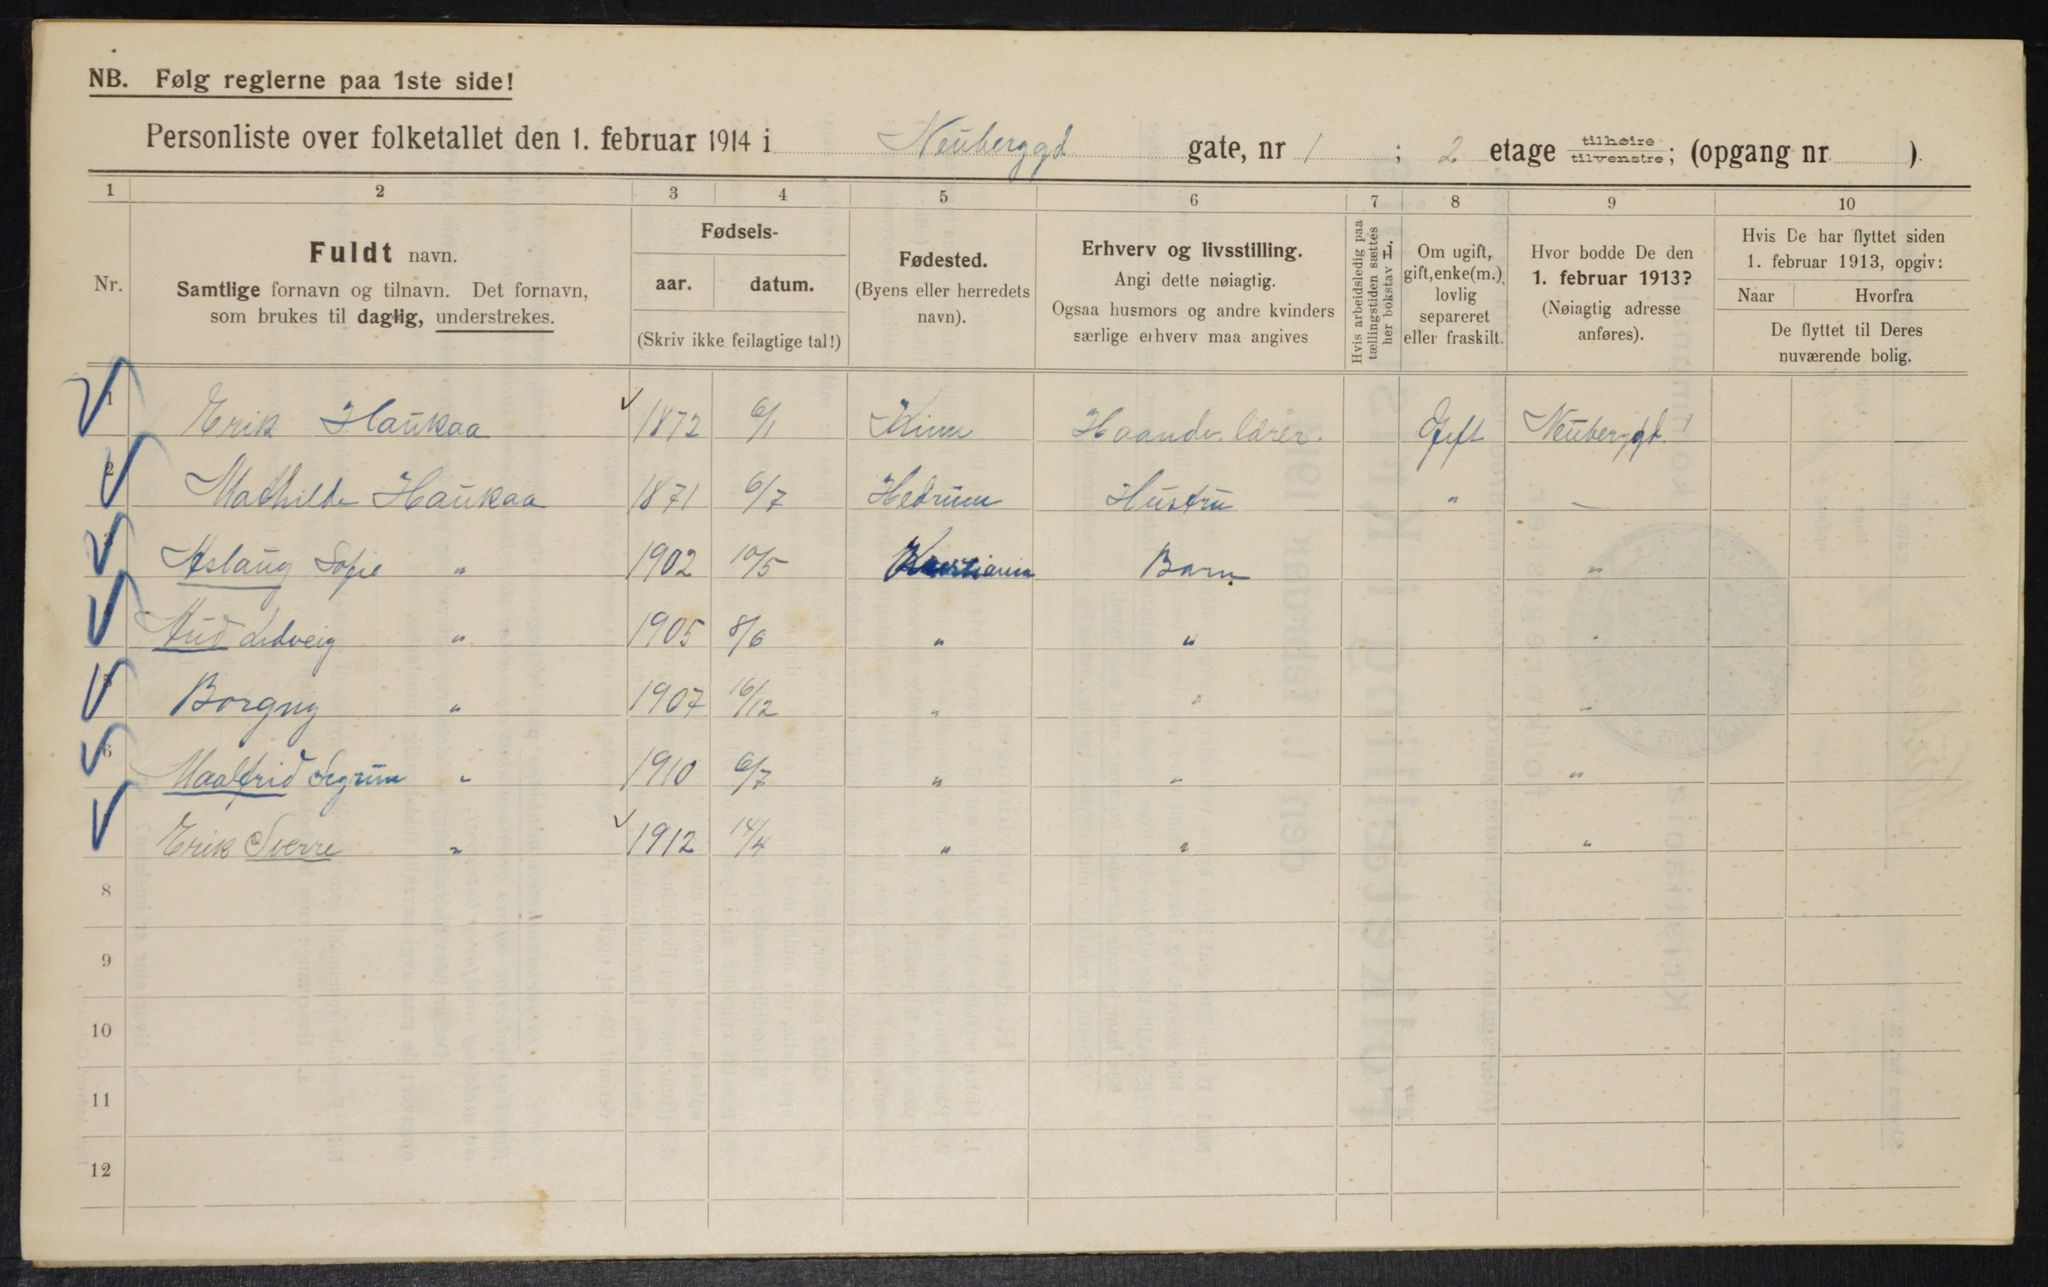 NB. Følg reglerne paa 1ste side!
Personliste over folketallet den 1. februar 1914 i Neuberggd gate, nr 1 ; 2 etage tilhøire tilvenstre; (opgang nr ).
1 2 3 4 5 6 7 8 9 10
Nr.
Fuldt navn.
Samtlige fornavn og tilnavn. Det fornavn,
som brukes til daglig, understrekes.
Fødsels-
aar. datum.
(Skriv ikke feilagtige tal!)
Fødested.
(Byens eller herredets
navn).
Erhverv og livsstilling.
Angi dette nøiagtig.
Ogsaa husmors og andre kvinders
særlige erhverv maa angives
Hvis arbeidsledig paa
tællingstiden sættes
her bokstav L.
Om ugift,
gift, enke(m.),
lovlig
separeret
eller fraskilt.
Hvor bodde De den
1. februar 1913?
(Nøiagtig adresse
anføres).
Hvis De har flyttet siden
1. februar 1913, opgiv:
Naar Hvorfra
De flyttet til Deres
nuværende bolig.
1 Erik Haukaa 1872 6/1 Kinn Haandv. lærer. Gift Neuberggd. 1
2 Mathilde Haukaa 1871 6/7 Hedrum Hustru " —
Aslaug Sofie " 1902 10/5 Barn "
Aud " 1905 8/6 " " "
5 Borgny " 1907 16/12 " " "
6 Maalfrid Sigrun " 1910 6/7 " " "
Erik Sverre " 1912 14/4 " " "
8
9
10
11
12